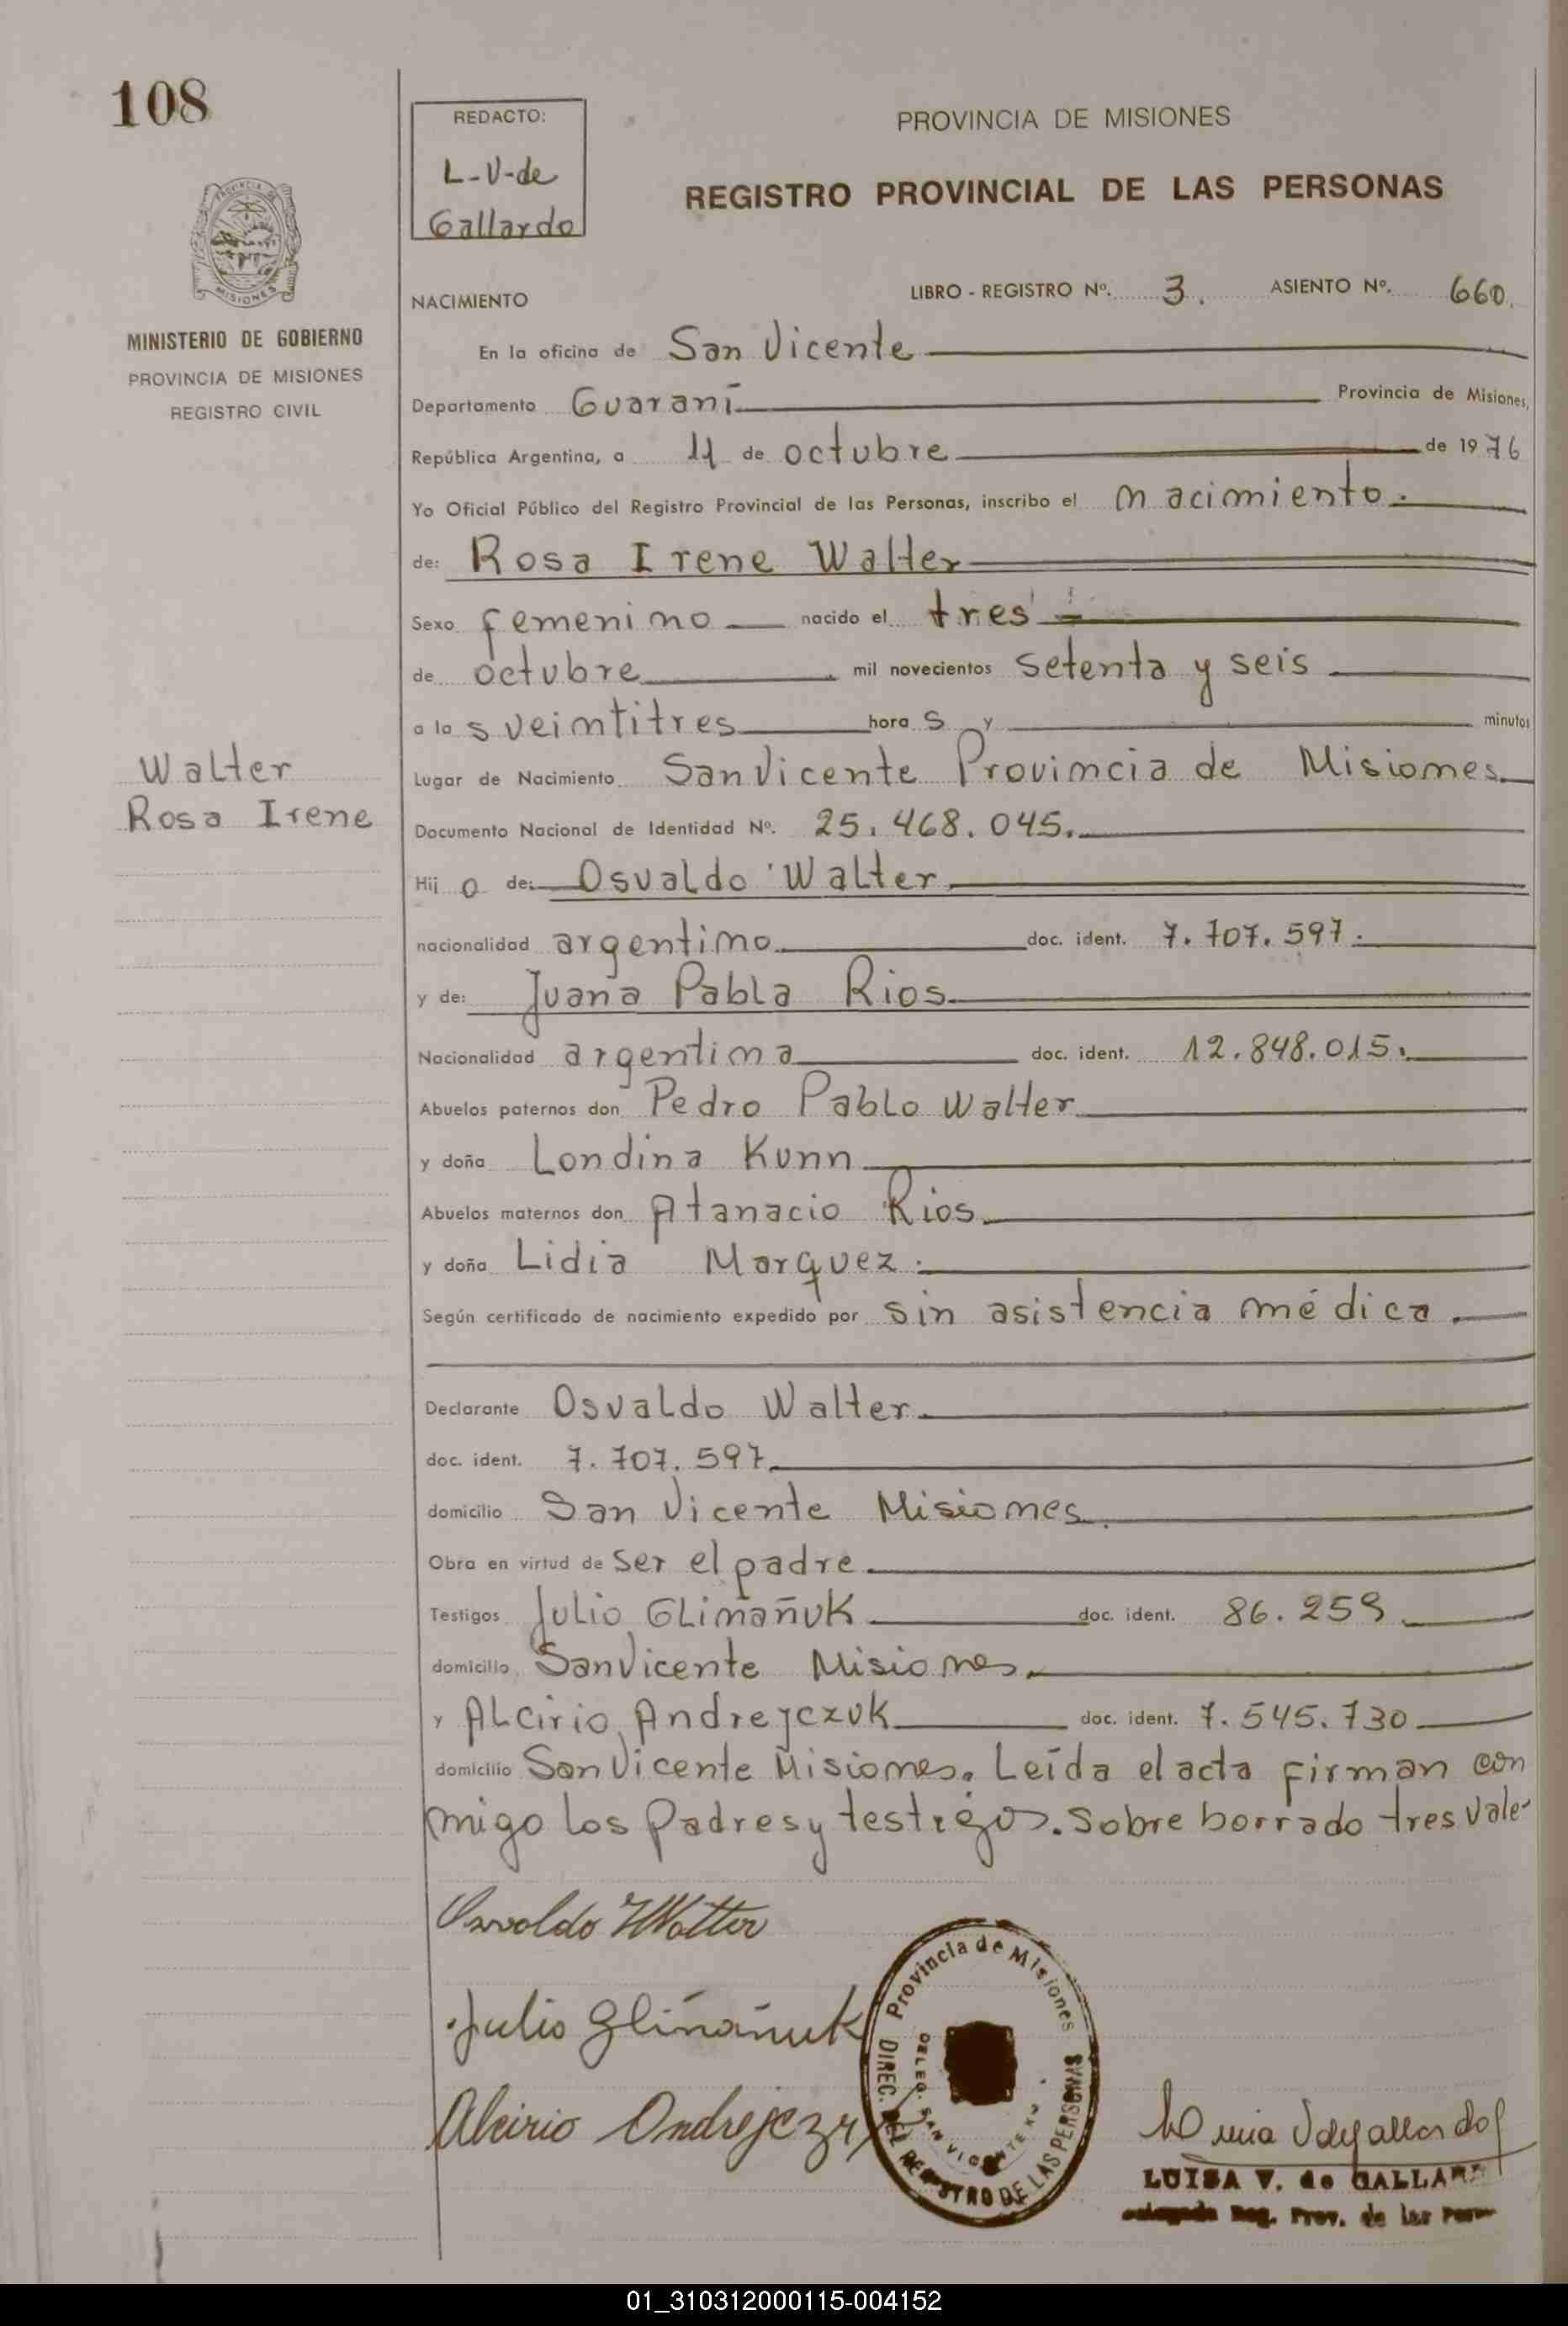 108
REDACTO:
L-V-de
Gallardo
PROVINCIA DE MISIONES
REGISTRO PROVINCIAL DE LAS PERSONAS
PROVINCIA DE
MISIONES
MINISTERIO DE GOBIERNO
PROVINCIA DE MISIONES
REGISTRO CIVIL
NACIMIENTO LIBRO - REGISTRO Nº. 3. ASIENTO Nº. 660.
En la oficina de San Vicente
Departamento Guaraní Provincia de Misiones,
República Argentina, a 11 de octubre de 1976
Yo Oficial Público del Registro Provincial de las Personas, inscribo el nacimiento.
de: Rosa Irene Walter
Sexo femenino nacido el tres
de octubre mil novecientos setenta y seis
a las veintitres horas y minutos
Walter
Rosa Irene
Lugar de Nacimiento San Vicente Provincia de Misiones
Documento Nacional de Identidad Nº. 25.468.045.
Hijo de: Osvaldo Walter
nacionalidad argentino doc. ident. 7.707.597.
y de: Juana Pabla Rios
Nacionalidad argentina doc. ident. 12.848.015.
Abuelos paternos don Pedro Pablo Walter
y doña Londina Kunn
Abuelos maternos don Atanacio Rios
y doña Lidia Marquez.
Según certificado de nacimiento expedido por sin asistencia médica.
Declarante Osvaldo Walter
doc. ident. 7.707.597
domicilio San Vicente Misiones.
Obra en virtud de ser el padre
Testigos Julio Gliñañuk doc. ident. 86.259
domicilio San Vicente Misiones.
y Alcirio Andrejczuk doc. ident. 7.545.730
domicilio San Vicente Misiones. Leída el acta firman con
migo los padres y testigos. Sobre borrado tres vale-
Osvaldo Walter
Julio Gliñañuk
Alcirio
Provincia de Misiones
DIREC. DEL REGISTRO DE LAS PERSONAS
DELEG. SAN VICENTE
LUISA V. de GALLARDO
Reg. Prov. de las
01_310312000115-004152